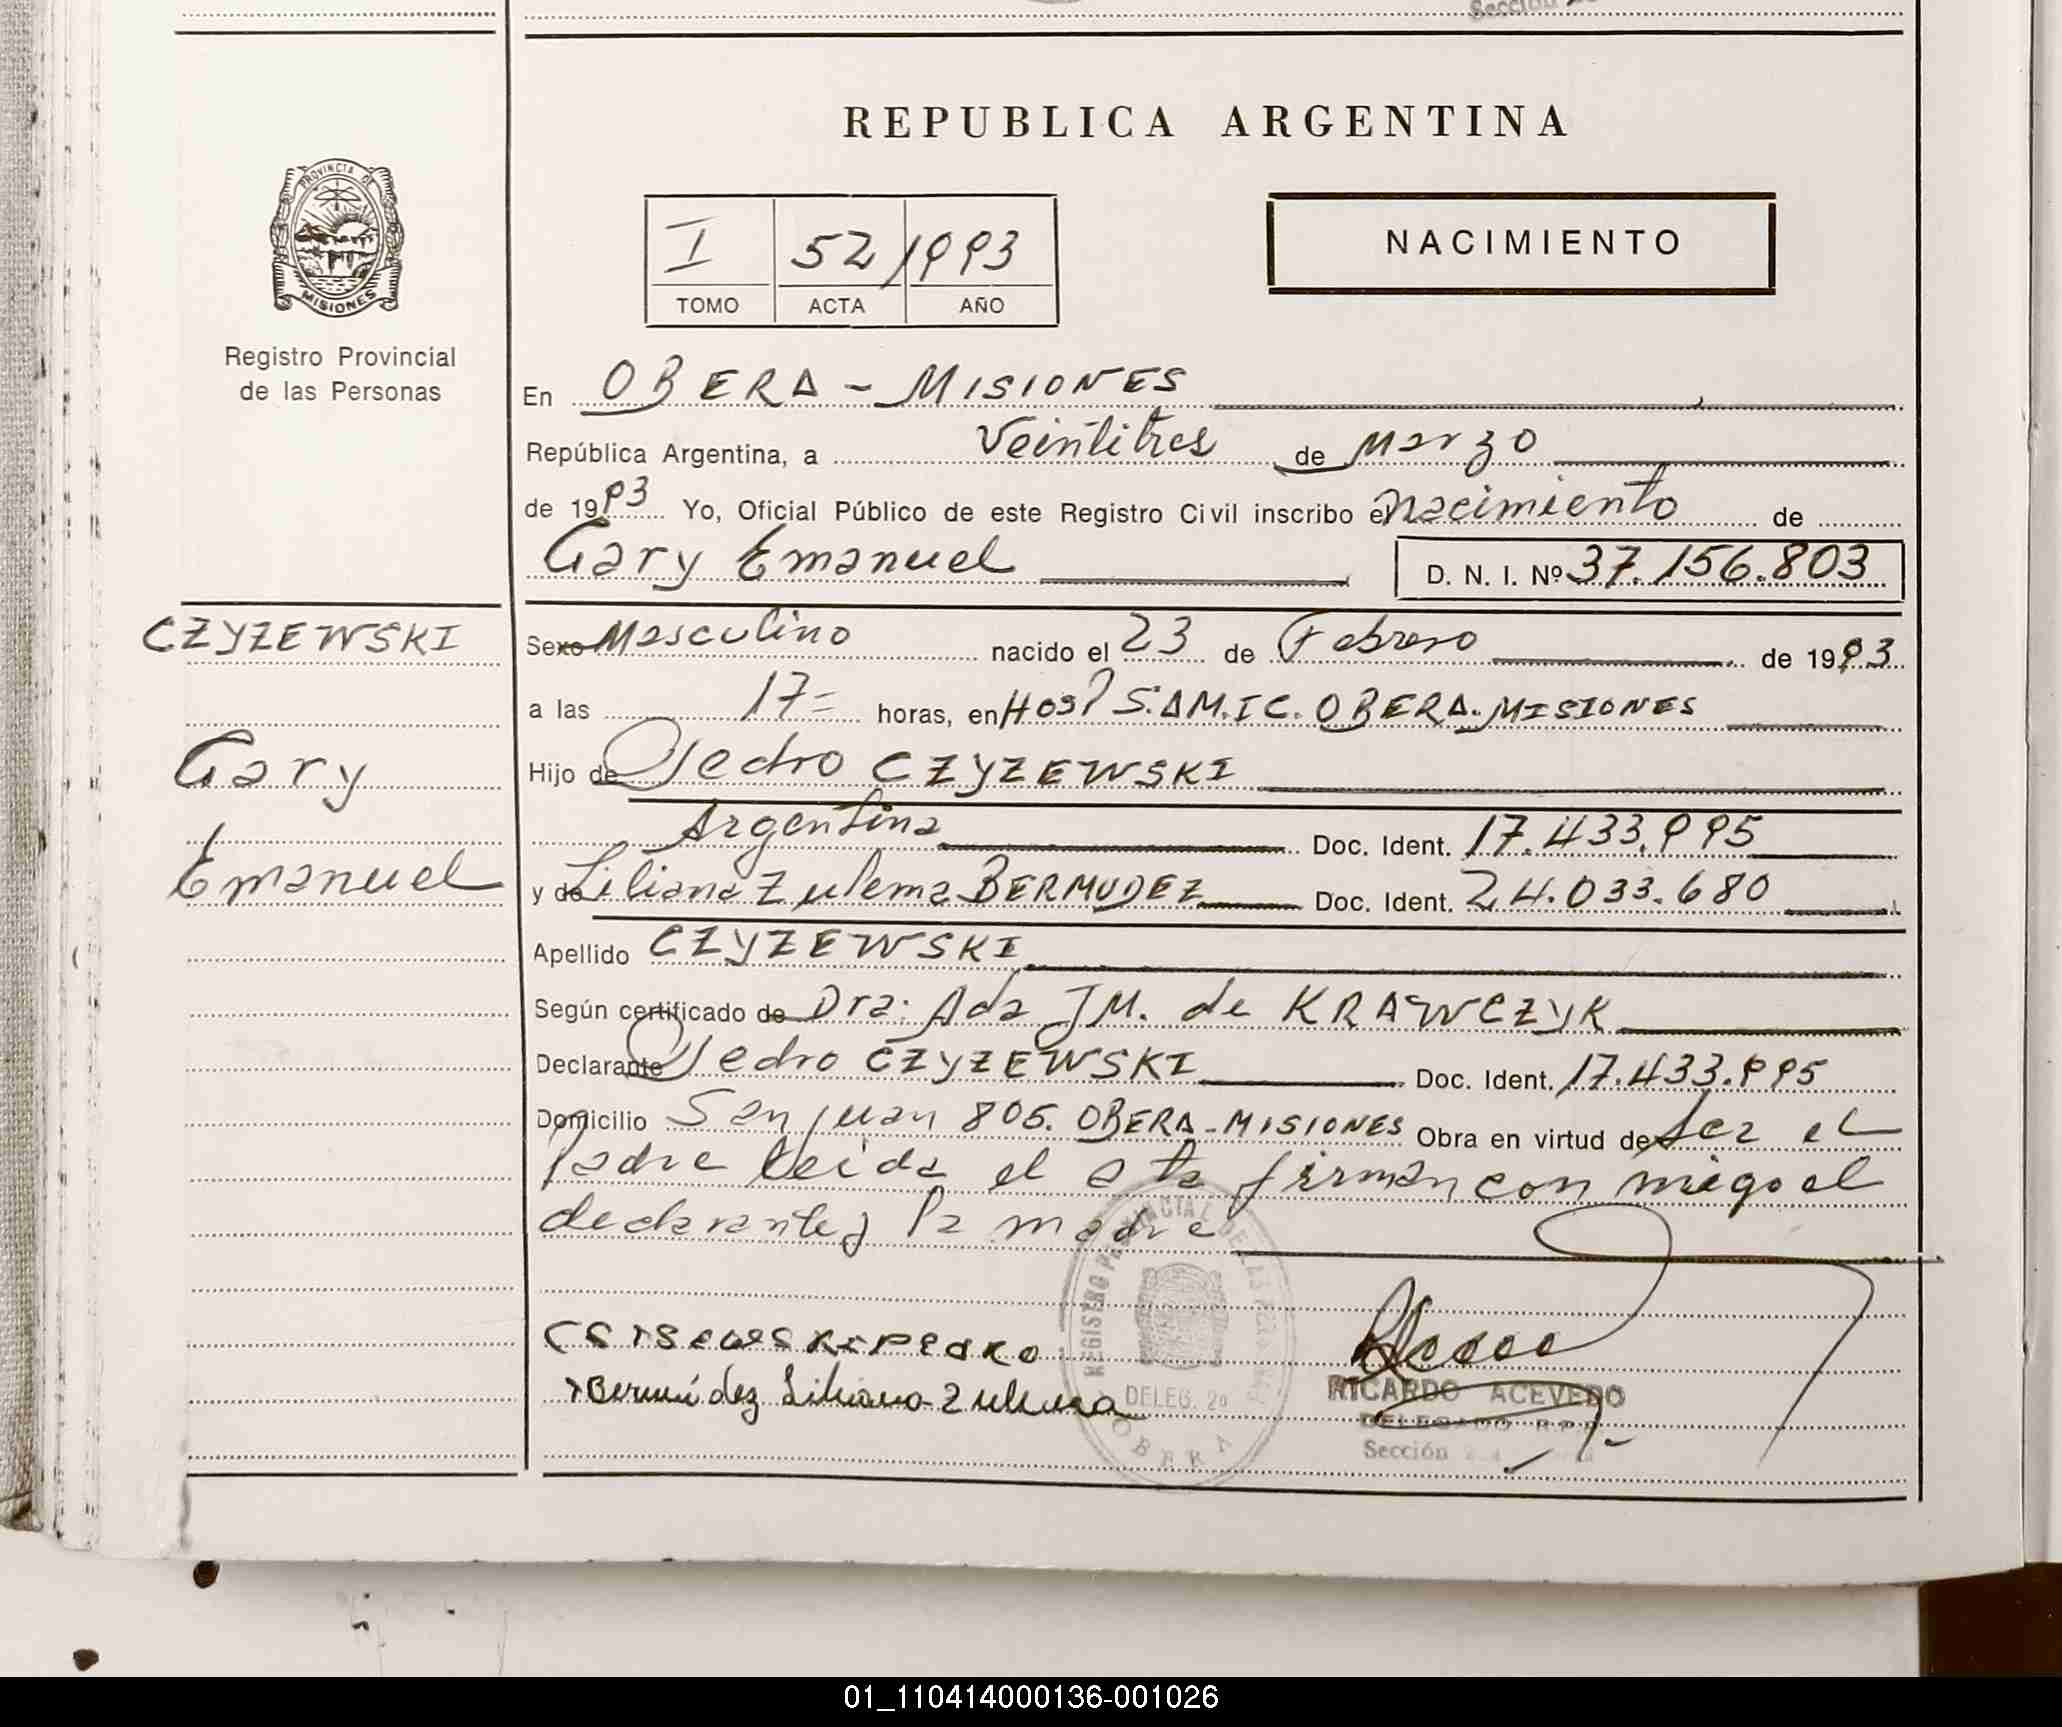 Sección
REPUBLICA ARGENTINA
PROVINCIA DE
MISIONES
Registro Provincial
de las Personas
I 52/1993
TOMO ACTA AÑO
NACIMIENTO
En OBERA - MISIONES
República Argentina, a Veintitres de Marzo
de 1993 Yo, Oficial Público de este Registro Civil inscribo el nacimiento de
Gary Emanuel D. N. I. Nº 37.156.803
CZYZEWSKI
Gary
Emanuel
Sexo Masculino nacido el 23 de Febrero de 1993
a las 17= horas, en HOSP S.AM.IC. OBERA. MISIONES
Hijo de Pedro CZYZEWSKI
Argentina Doc. Ident. 17.433.995
y de Liliana Zulema BERMUDEZ Doc. Ident. 24.033.680
Apellido CZYZEWSKI
Según certificado de Dra: Ada JM. de KRAWCZYK
Declarante Pedro CZYZEWSKI Doc. Ident. 17.433.995
Domicilio San Juan 805. OBERA - MISIONES Obra en virtud de ser el
Padre leida el firman con migo el
declarante y la madre
REGISTRO PROVINCIAL DE LAS PERSONAS
DELEG. 2º
OBERA
PEDRO
Bermúdez Liliana Zulema
RICARDO ACEVEDO
DELEGADO R.P.P.
Sección
01_110414000136-001026